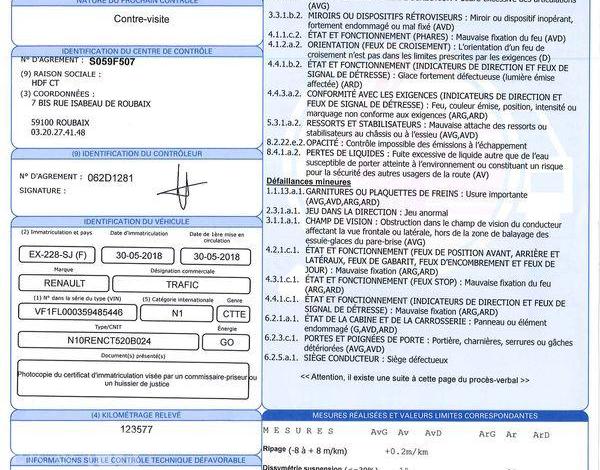 NATURE DU PROCHAIN CONTRÔLE
Contre-visite
IDENTIFICATION DU CENTRE DE CONTRÔLE
N° D'AGREMENT : S059F507
(9) RAISON SOCIALE :
HDF CT
(3) COORDONNÉES :
7 BIS RUE ISABEAU DE ROUBAIX
59100 ROUBAIX
03.20.27.41.48
(9) IDENTIFICATION DU CONTRÔLEUR
N° D'AGREMENT : 062D1281
SIGNATURE :
IDENTIFICATION DU VÉHICULE
(2) Immatriculation et pays Date d'immatriculation Date de 1ère mise en circulation
EX-228-SJ (F) 30-05-2018 30-05-2018
Marque Désignation commerciale
RENAULT TRAFIC
(1) N° dans la série du type (VIN) (5) Catégorie internationale Genre
VF1FL000359485446 N1 CTTE
Type/CNIT Énergie
N10RENCT520B024 GO
Document(s) présenté(s)
Photocopie du certificat d'immatriculation visée par un commissaire-priseur ou
un huissier de justice
(4) KILOMÉTRAGE RELEVÉ
123577
INFORMATIONS SUR LE CONTRÔLE TECHNIQUE DÉFAVORABLE
(AVG)
3.3.1.b.2. MIROIRS OU DISPOSITIFS RÉTROVISEURS : Miroir ou dispositif inopérant,
fortement endommagé ou mal fixé (AVD)
4.1.1.c.2. ÉTAT ET FONCTIONNEMENT (PHARES) : Mauvaise fixation du feu (AVD)
4.1.2.a.2. ORIENTATION (FEUX DE CROISEMENT) : L'orientation d'un feu de
croisement n'est pas dans les limites prescrites par les exigences (D)
4.4.1.b.2. ÉTAT ET FONCTIONNEMENT (INDICATEURS DE DIRECTION ET FEUX DE
SIGNAL DE DÉTRESSE) : Glace fortement défectueuse (lumière émise
affectée) (ARD)
4.4.3.a.2. CONFORMITÉ AVEC LES EXIGENCES (INDICATEURS DE DIRECTION ET
FEUX DE SIGNAL DE DÉTRESSE) : Feu, couleur émise, position, intensité ou
marquage non conforme aux exigences (ARG,ARD)
5.3.1.a.2. RESSORTS ET STABILISATEURS : Mauvaise attache des ressorts ou
stabilisateurs au châssis ou à l'essieu (AVG,AVD)
8.2.22.e.2. OPACITÉ : Contrôle impossible des émissions à l'échappement
8.4.1.a.2. PERTES DE LIQUIDES : Fuite excessive de liquide autre que de l'eau
susceptible de porter atteinte à l'environnement ou constituant un risque
pour la sécurité des autres usagers de la route (AV)
Défaillances mineures
1.1.13.a.1. GARNITURES OU PLAQUETTES DE FREINS : Usure importante
(AVG,AVD,ARG,ARD)
2.1.3.a.1. JEU DANS LA DIRECTION : Jeu anormal
3.1.1.a.1. CHAMP DE VISION : Obstruction dans le champ de vision du conducteur
affectant la vue frontale ou latérale, hors de la zone de balayage des
essuie-glaces du pare-brise (AVG)
4.2.1.c.1. ÉTAT ET FONCTIONNEMENT (FEUX DE POSITION AVANT, ARRIÈRE ET
LATÉRAUX, FEUX DE GABARIT, FEUX D'ENCOMBREMENT ET FEUX DE
JOUR) : Mauvaise fixation (ARG,ARD)
4.3.1.c.1. ÉTAT ET FONCTIONNEMENT (FEUX STOP) : Mauvaise fixation du feu
(ARG,ARD)
4.4.1.c.1. ÉTAT ET FONCTIONNEMENT (INDICATEURS DE DIRECTION ET FEUX DE
SIGNAL DE DÉTRESSE) : Mauvaise fixation du feu (ARG,ARD)
6.2.1.a.1. ÉTAT DE LA CABINE ET DE LA CARROSSERIE : Panneau ou élément
endommagé (G,AVD,ARD)
6.2.3.c.1. PORTES ET POIGNÉES DE PORTE : Portière, charnières, serrures ou gâches
détériorées (AVG,AVD)
6.2.5.a.1. SIÈGE CONDUCTEUR : Siège défectueux
<< Attention, il existe une suite à cette page du procès-verbal >>
MESURES RÉALISÉES ET VALEURS LIMITES CORRESPONDANTES
MESURES AvG Av AvD ArG Ar ArD
Ripage (-8 à + 8 m/km) +0.2m/km